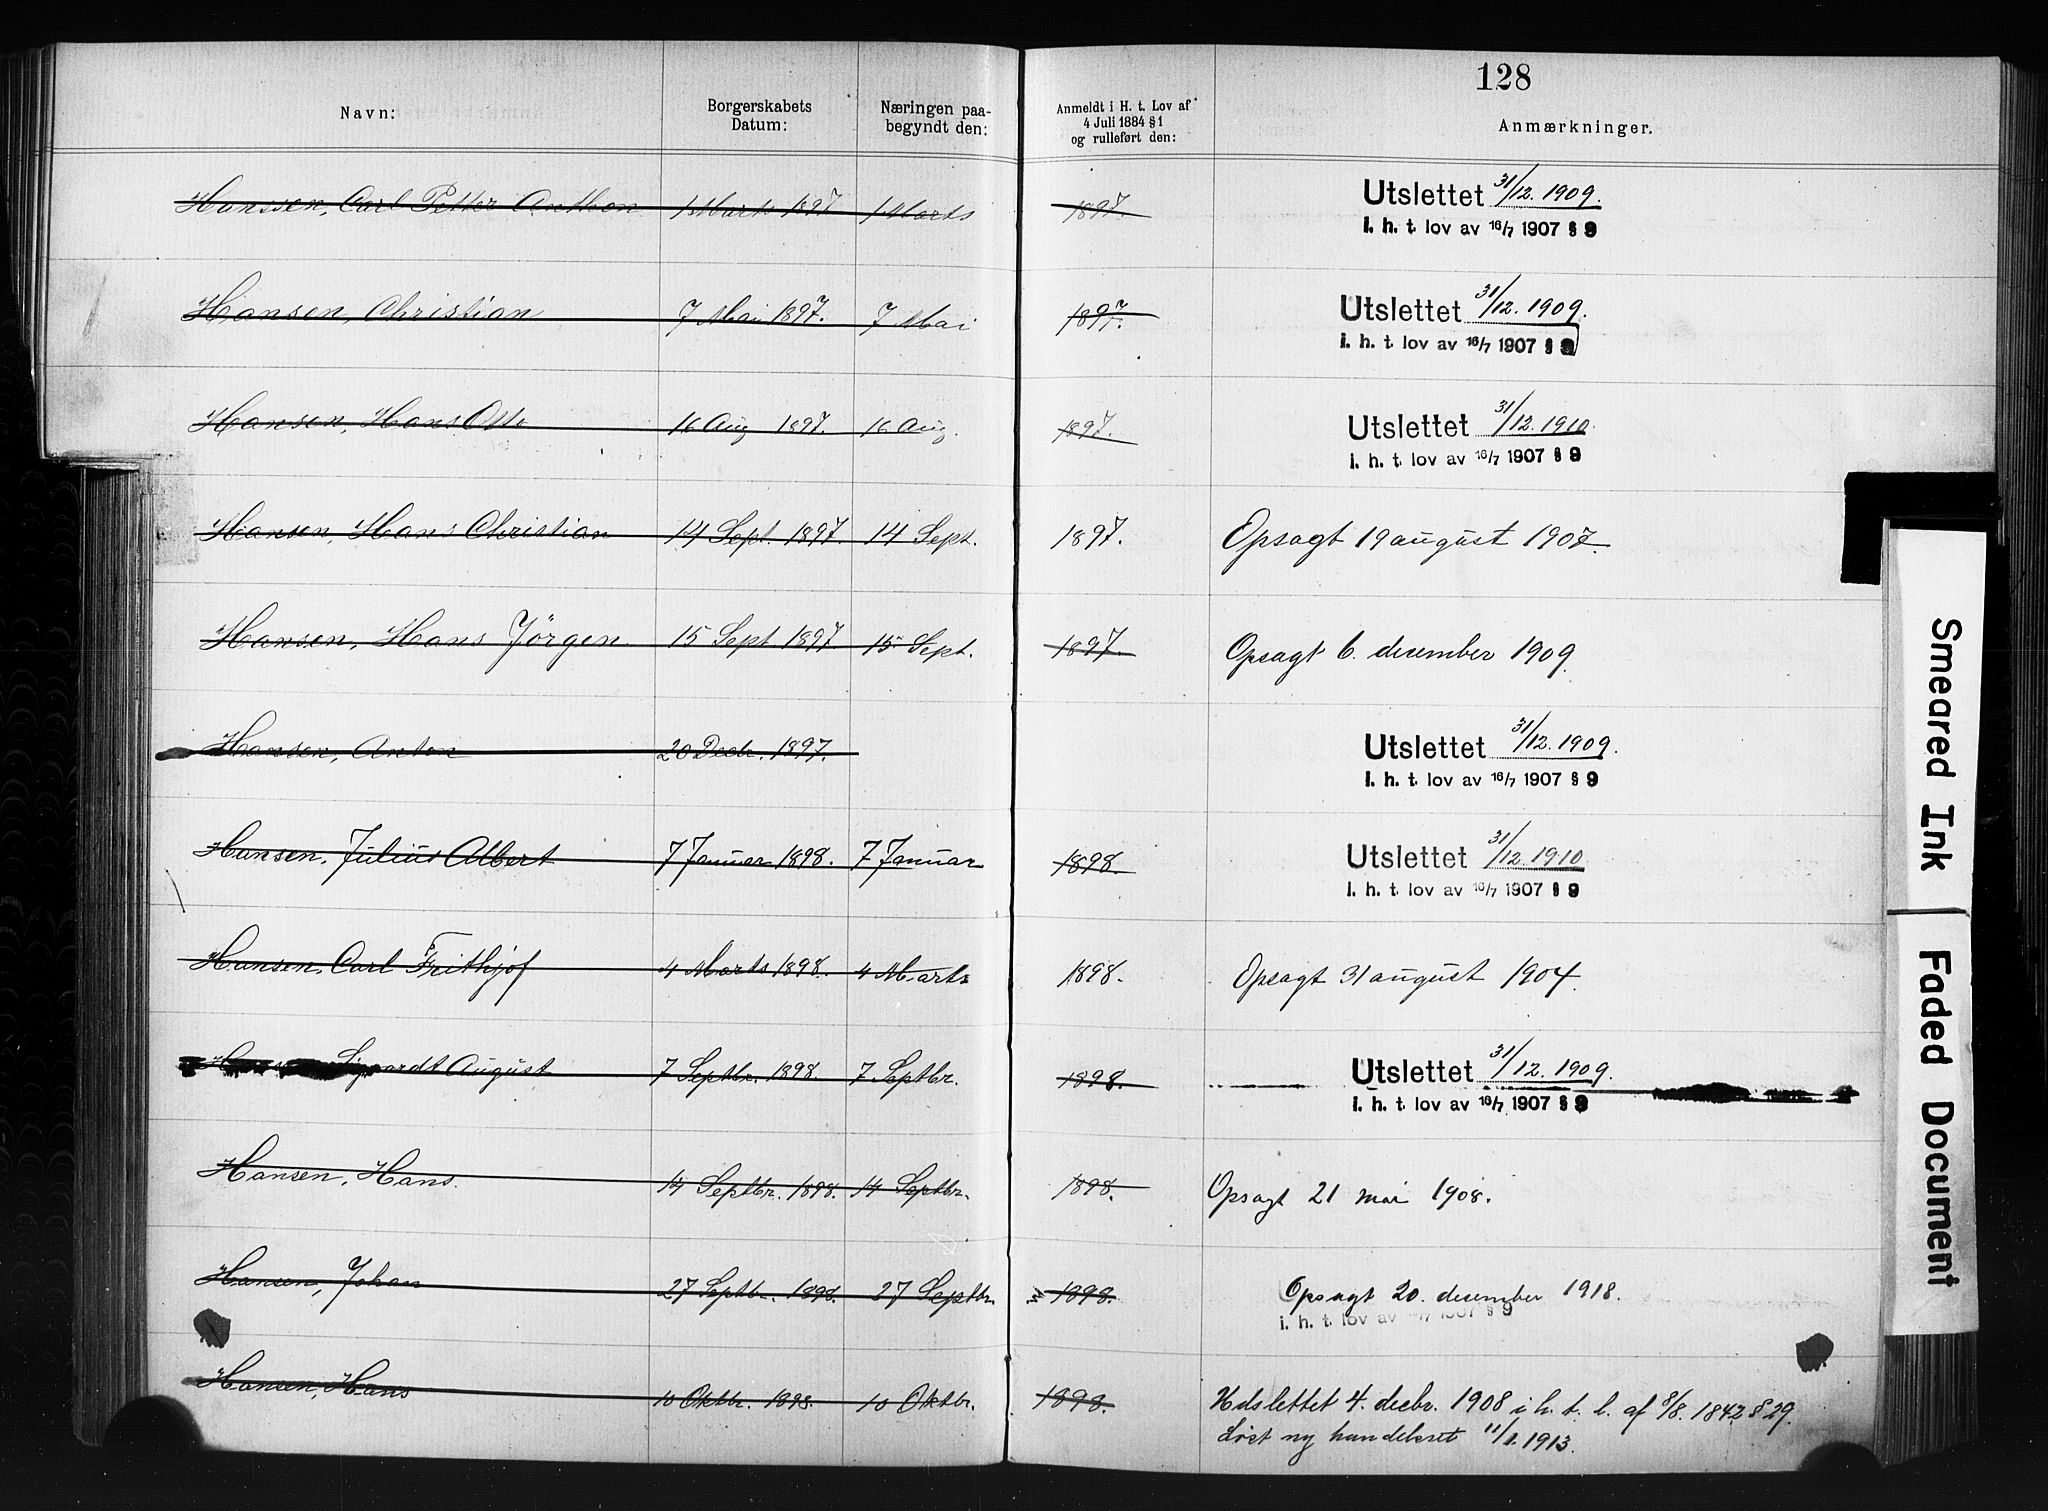 128
Navn:
Borgerskabets Datum:
Næringen paa-begyndt den:
Anmeldt i H. t. Lov af 4 Juli 1884 § 1 og rulleført den:
Anmærkninger.
Hanssen, Carl Petter Anthon 1 Marts 1897 1 Marts 1897. Utslettet 31/12. 1909.
i. h. t. lov av 16/7 1907 § 9
Hansen, Christian 7 Mai 1897. 7 Mai 1897. Utslettet 31/12. 1909.
i. h. t. lov av 16/7 1907 § 9
Hansen, Hans Otto 16 Aug 1897. 16 Aug. 1897. Utslettet 31/12. 1910
i. h. t. lov av 16/7 1907 § 9
Hansen, Hans Christian 14 Sept. 1897. 14 Sept. 1897. Opsagt 19 august 1907.
Hansen, Hans Jörgen 15 Sept 1897 15 Sept. 1897. Opsagt 6. desember 1909.
Hansen, Anton 20 Decbr. 1897. Utslettet 31/12. 1909.
i. h. t. lov av 16/7 1907 § 9
Hansen, Julius Albert 7 Januar 1898. 7 Januar 1898. Utslettet 31/12. 1910
i. h. t. lov av 16/7 1907 § 9
Hansen, Carl Frithjof 4 Marts 1898. 4 Marts 1898. Opsagt 31 august 1904.
Sigvardt August 7 Septbr. 1898. 7 Septbr. 1898. Utslettet 31/12. 1909.
i. h. t. lov av 16/7 1907 § 9
Hansen, Hans. 14 Septbr. 1898. 14 Septbr. 1898. Opsagt 21 mai 1908.
Hansen, Johan 27 Septbr. 1898. 27 Septbr. 1898. Opsagt 20. desember 1918.
i. h. t. lov av 1907 § 9
Hansen, Hans 10 Oktbr. 1898. 10 Oktbr. 1898. Udslettet 4. decbr. 1908 i h. t. l. af 8/8. 1842 § 29.
Löst ny handelsret 11/1. 1913.
Smeared Ink
Faded Document